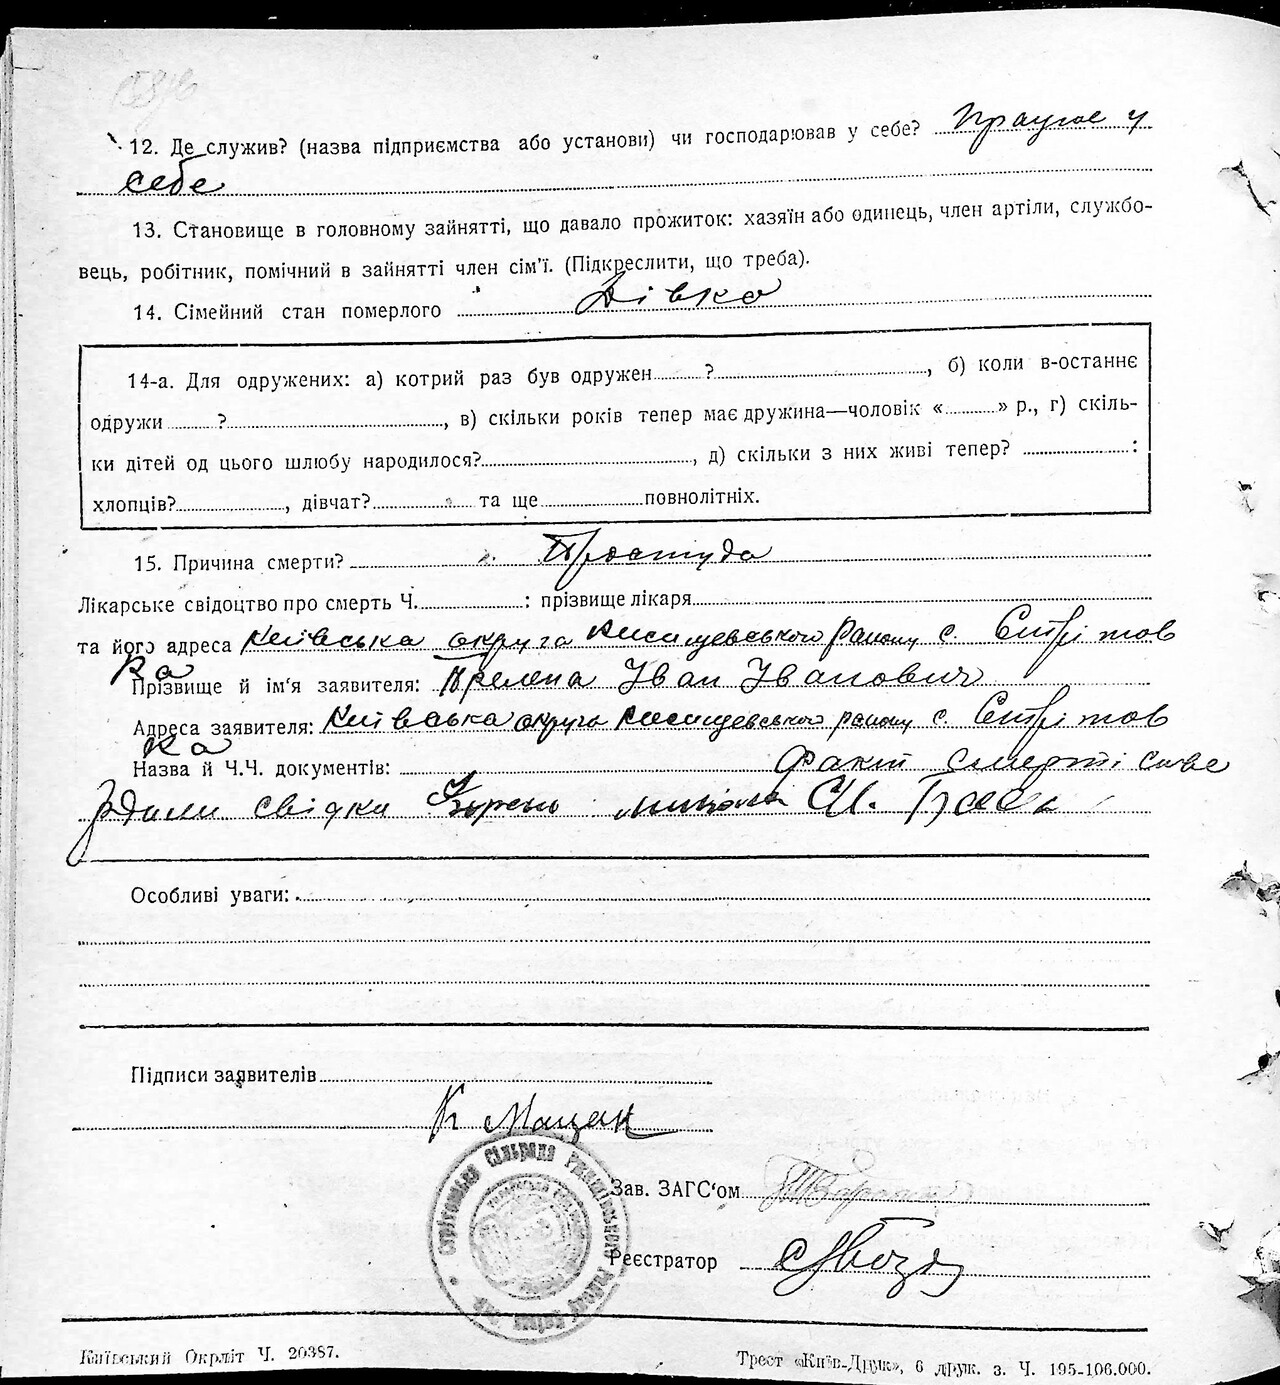 12. Де служив? (назва підприємства або установи) чи господарював у себе? Працює у
себе
13. Становище в головному зайнятті, що давало прожиток: хазяїн або одинець, член артіли, службо-
вець, робітник, помічний в зайнятті член сім'ї. (Підкреслити, що треба).
14. Сімейний стан померлого Дівка
14-а. Для одружених: а) котрий раз був одружен ?, б) коли в-останнє
одружи ?, в) скільки років тепер має дружина—чоловік « » р., г) скіль-
ки дітей од цього шлюбу народилося?, д) скільки з них живі тепер? :
хлопців?, дівчат? та ще повнолітніх.
15. Причина смерти? Простуда
Лікарське свідоцтво про смерть Ч. : прізвище лікаря
та його адреса Київська округа район с. Стрітов
ка
Прізвище й ім'я заявителя: Іван Іванович
Адреса заявителя: Київська округа району с. Стрітов
ка
Назва й Ч.Ч. документів: Факт смерті
свідки
Особливі уваги:
Підписи заявителів
К Мацак
Зав. ЗАГС'ом
Реєстратор
Київський Окрліт Ч. 20387.
Трест «Київ-Друк», 6 друк. з. Ч. 195-106.000.